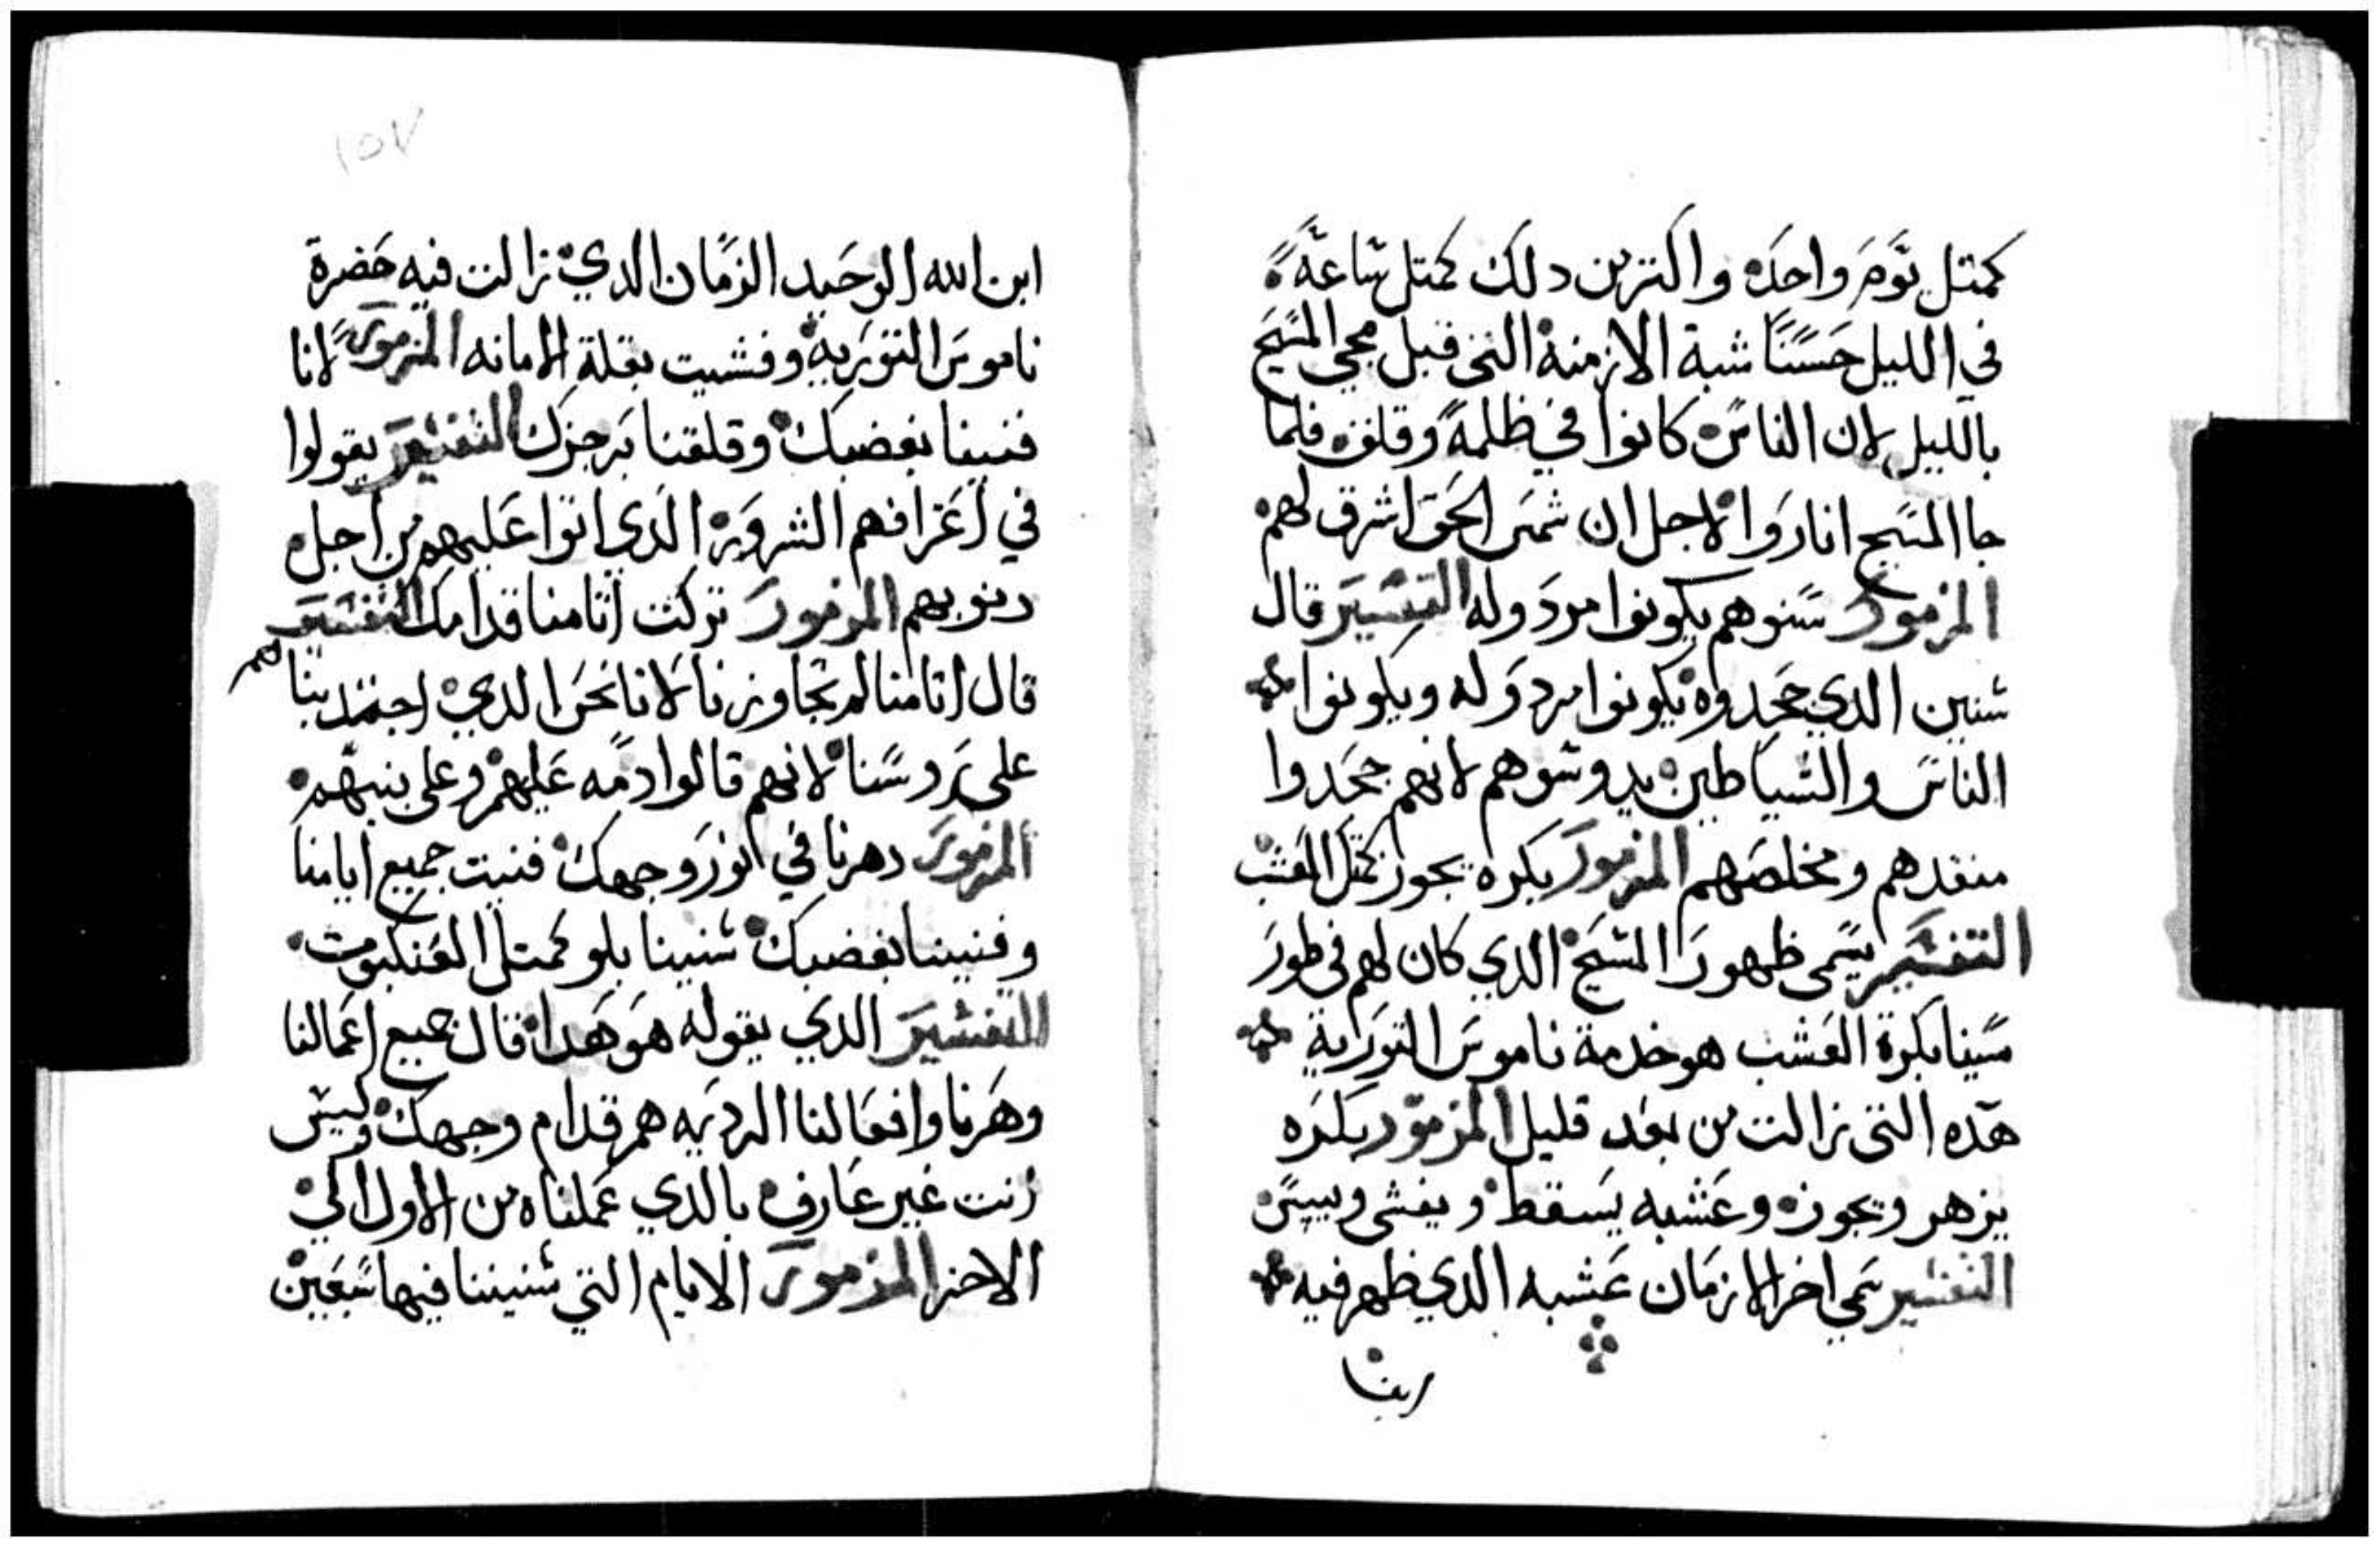 كمتل يوم واحده واكترين دلك كمتل ساعة
في الليل حسنا شبة الازمنة التي قبل مجي المسيح
بالليل لان الناس كانوا في ظلمة وقلق فلما
جا المسيح انار وا لاجل ان شمس الحق اشرق لهم
المزمور سنوهم يكونوا مردوله التفسير قال
سنين الدي جحدوه يكونوا مردوله ويكونوا
الناس والشياطين يدوسوهم لانهم جحدوا
منقدهم ومخلصهم المزمور بكره يجوز كمتل العشب
التفسير يسمى ظهور المسيح الدي كان لهم في طور
سينا بكرة العشب هو خدمة ناموس التوراية
هده التي زالت من بعد قليل المزمور بكره
يزهر ويجوز وعشبه يسقط ويفشى وييبس
التفسير سمي اخر الازمان عشبه الدي ظهر فيه
ابن
١٥٧
ابن الله الوحيد الزمان الدي زالت فيه حضرة
ناموس التوريه وفشيت بقلة الامانه المزمور لانا
فنينا بغضبك وقلقنا برجزك التفسير يقولوا
في اعترافهم الشرور الدي اتوا عليهم من اجل
دنوبهم المزمور تركت اتامنا قدامك التفسير
قال اتامنا لم تجاوزنا لانا نحن الدي اجتدبناهم
على روسنا لانهم قالوا دمه عليهم وعلى بنيهم
المزمور دهرنا في نور وجهك فنيت جميع ايامنا
وفنينا بغضبك سنينا يلو كمتل العنكبوت
التفسير الدي يقوله هو هدا قال جميع اعمالنا
وهرنا وافعالنا الرديه هم قدام وجهك وليس
انت غير عارف بالدي عملناه من الاول الي
الاخر المزمور الايام التي سنيننا فيها سبعين